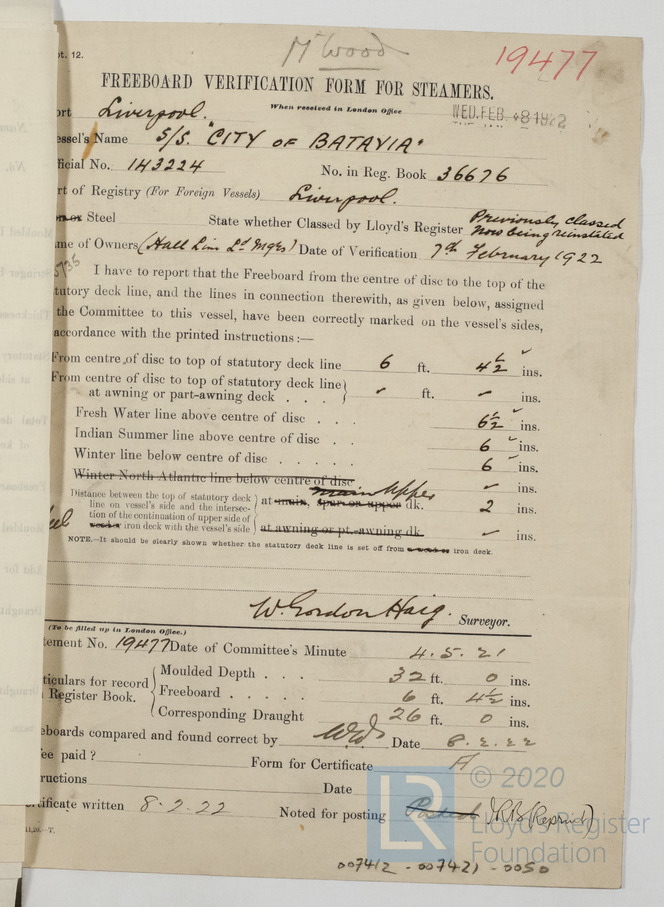 pt. 12.
Mr Wood
19477
FREEBOARD VERIFICATION FORM FOR STEAMERS.
When received in London Office
WED. FEB. 8 1922
ort Liverpool.
essel's Name S/S. "CITY OF BATAVIA"
ficial No. 143224 No. in Reg. Book 36676
rt of Registry (For Foreign Vessels) Liverpool.
Steel State whether Classed by Lloyd's Register Previously classed
now being reinstated
me of Owners (Hall Line Ld Mgrs) Date of Verification 7th February 1922
I have to report that the Freeboard from the centre of disc to the top of the
tutory deck line, and the lines in connection therewith, as given below, assigned
the Committee to this vessel, have been correctly marked on the vessel's sides,
accordance with the printed instructions:—
From centre of disc to top of statutory deck line 6 ft. 4½ ins.
From centre of disc to top of statutory deck line
at awning or part-awning deck . . . ft. ins.
Fresh Water line above centre of disc . . . 6½ ins.
Indian Summer line above centre of disc . . 6 ins.
Winter line below centre of disc . . . . . 6 ins.
Winter North Atlantic line below centre of disc ins.
main Upper
Distance between the top of statutory deck
line on vessel's side and the intersec-
tion of the continuation of upper side of
iron deck with the vessel's side
at main, spar or upper dk. 2 ins.
at awning or pt.-awning dk. ins.
NOTE.—It should be clearly shown whether the statutory deck line is set off from iron deck.
W. Gordon Haig. Surveyor.
(To be filled up in London Office.)
tement No. 19477 Date of Committee's Minute 4.5.21
ticulars for record
Register Book.
Moulded Depth . . . 32 ft. 0 ins.
Freeboard . . . . . 6 ft. 4½ ins.
Corresponding Draught 26 ft. 0 ins.
eboards compared and found correct by Date 8.2.22
ee paid? Form for Certificate A
tructions Date
rtificate written 8.2.22 Noted for posting Posted (RB (Reprint)
11,20.—T.
LR
© 2020
Lloyd's Register
Foundation
007412 - 007421 - 0050